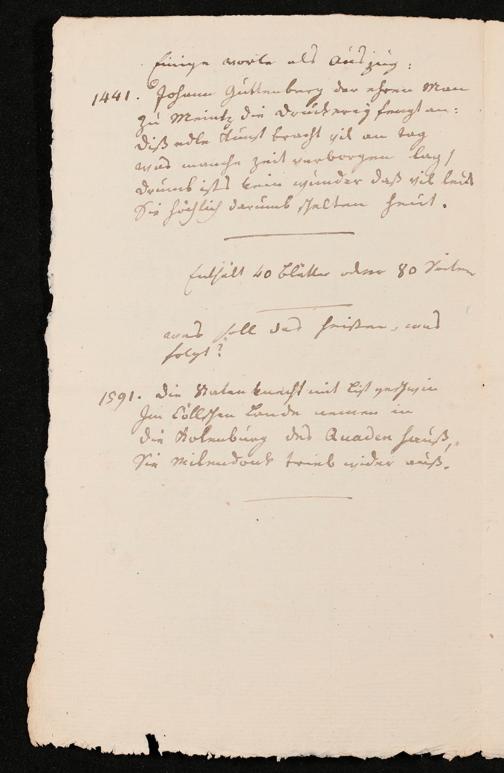 Einige worte als Auszug:
1441. Johann Guttenberg der ehren Man
zu Meintz die Druckerey fengt an:
Diß edle Kunst bracht vil an tag
was manche zeit verborgen lag/
Drumb ist's kein wunder daß vil leut
Sie höchlich darumb schelten heut.
Enthält 40 Blätter oder 80 Seiten
was soll das heißen, was
folgt?
1591. Die Staten knecht mit list geschwin
Im Cöllschen Lande nemen in
die Stolenburg des Quaden Hauß,
Sie Milendonk trieb wider auß.